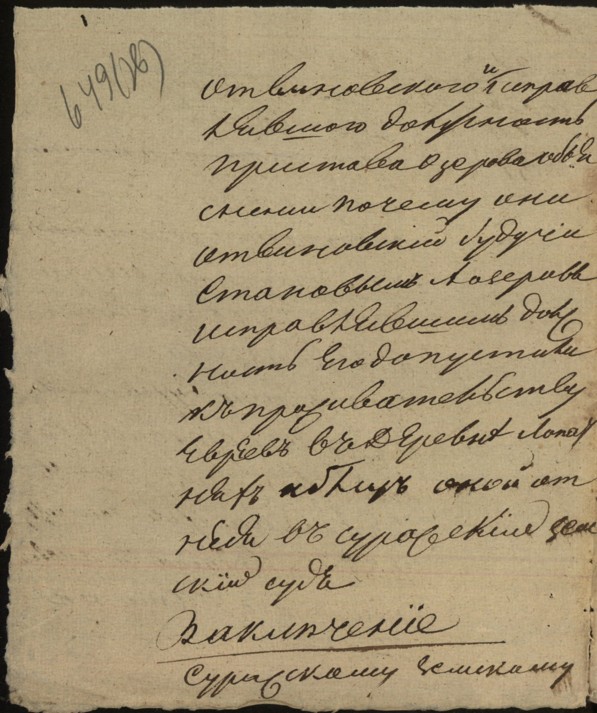 649(26)
отвиновского и исправ
лявшого должность
пристава Озерова объя
снении почему они
отвиновский будучи
становымъ а озеровъ
исправлявшимъ долж
ность его допустили
къ прожевательству
Евреевъ въ деревне Лопат
няхъ оной от
въ суражский зем
ский судъ
Заключение
суражскому земскому